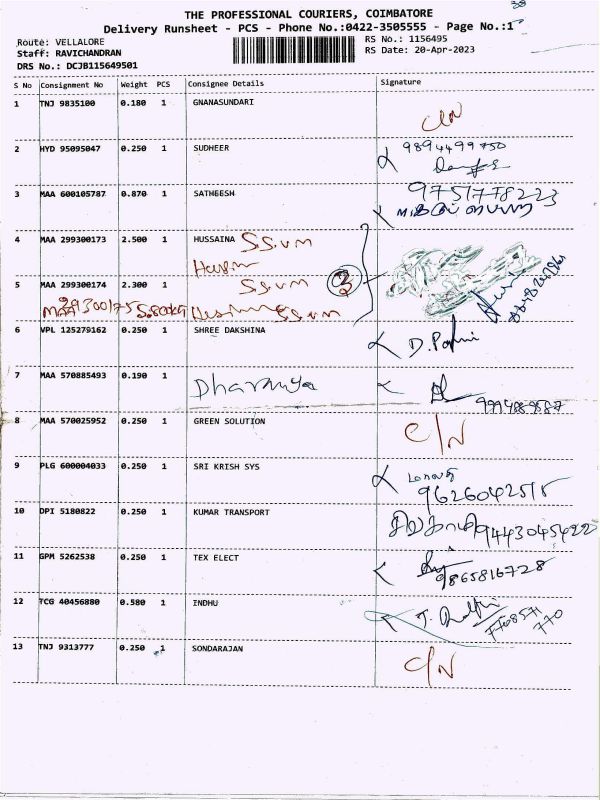 38
THE PROFESSIONAL COURIERS, COIMBATORE
Delivery Runsheet - PCS - Phone No.:0422-3505555 - Page No.:1
Route: VELLALORE
RS No.: 1156495
Staff: RAVICHANDRAN
RS Date: 20-Apr-2023
DRS No.: DCJB115649501
S No Consignment No Weight PCS Consignee Details Signature
1 TNJ 9835100 0.180 1 GNANASUNDARI
C/N
2 HYD 95095047 0.250 1 SUDHEER
9894499750
3 MAA 600105787 0.870 1 SATHEESH
9751778223
4 MAA 299300173 2.500 1 HUSSAINA S.S.V.M
5 MAA 299300174 2.300 1 S.S.V.M
3
MAA 299300175 S.S.V.M
6 VPL 125279162 0.250 1 SHREE DAKSHINA
7 MAA 570885493 0.190 1 Dharanya
8 MAA 570025952 0.250 1 GREEN SOLUTION C/N
9 PLG 600004033 0.250 1 SRI KRISH SYS
10 DPI 5180822 0.250 1 KUMAR TRANSPORT
11 GPM 5262538 0.250 1 TEX ELECT
9865816728
12 TCG 40456880 0.580 1 INDHU
13 TNJ 9313777 0.250 1 SONDARAJAN
C/N